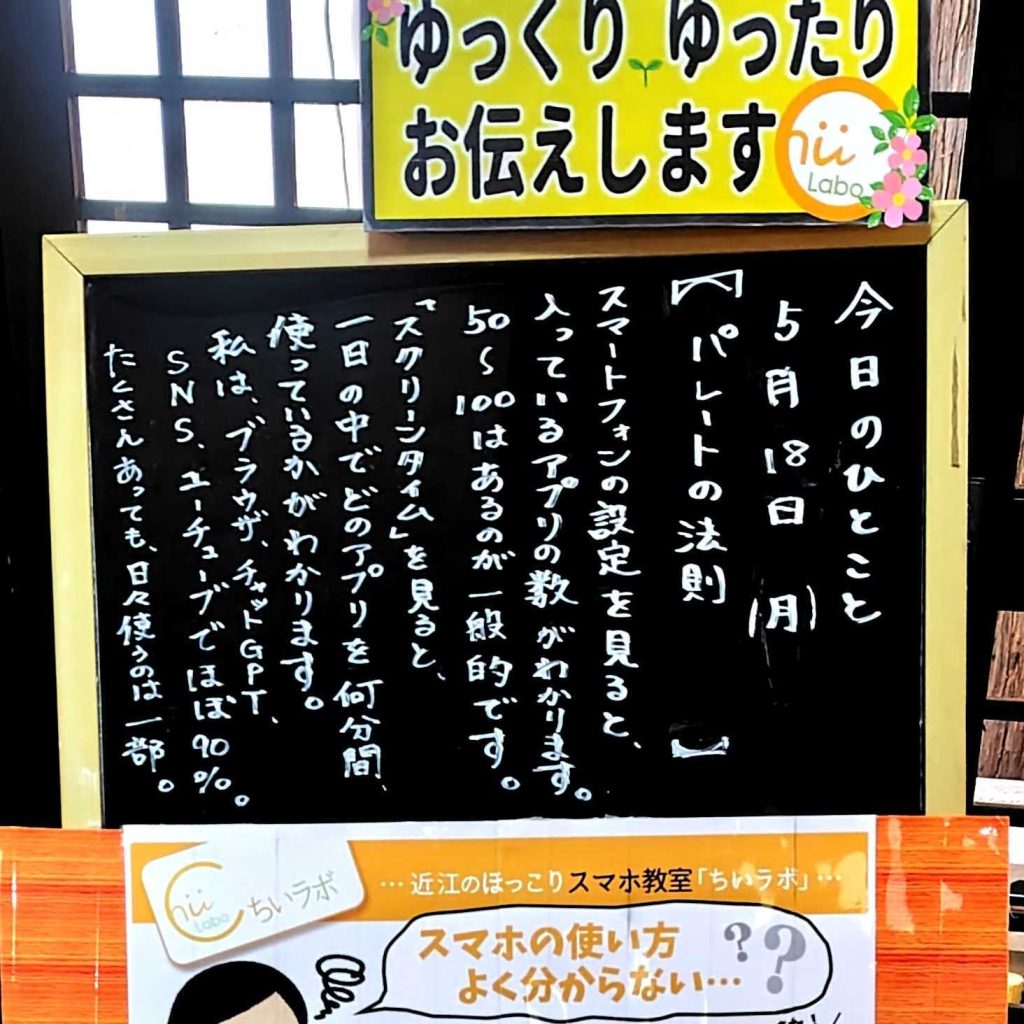 ゆっくり ゆったり
お伝えします
hii
Labo
今日のひとこと
5月18日(月)
【パレートの法則 】
スマートフォンの設定を見ると、
入っているアプリの数がわかります。
50〜100はあるのが一般的です。
「スクリーンタイム」を見ると、
一日の中でどのアプリを何分間、
使っているかがわかります。
私は、ブラウザ、チャットGPT、
SNS、ユーチューブでほぼ90%。
たくさんあっても、日々使うのは一部。
Chii
Labo
ちいラボ
…近江のほっこりスマホ教室「ちいラボ」…
スマホの使い方
よく分からない…??